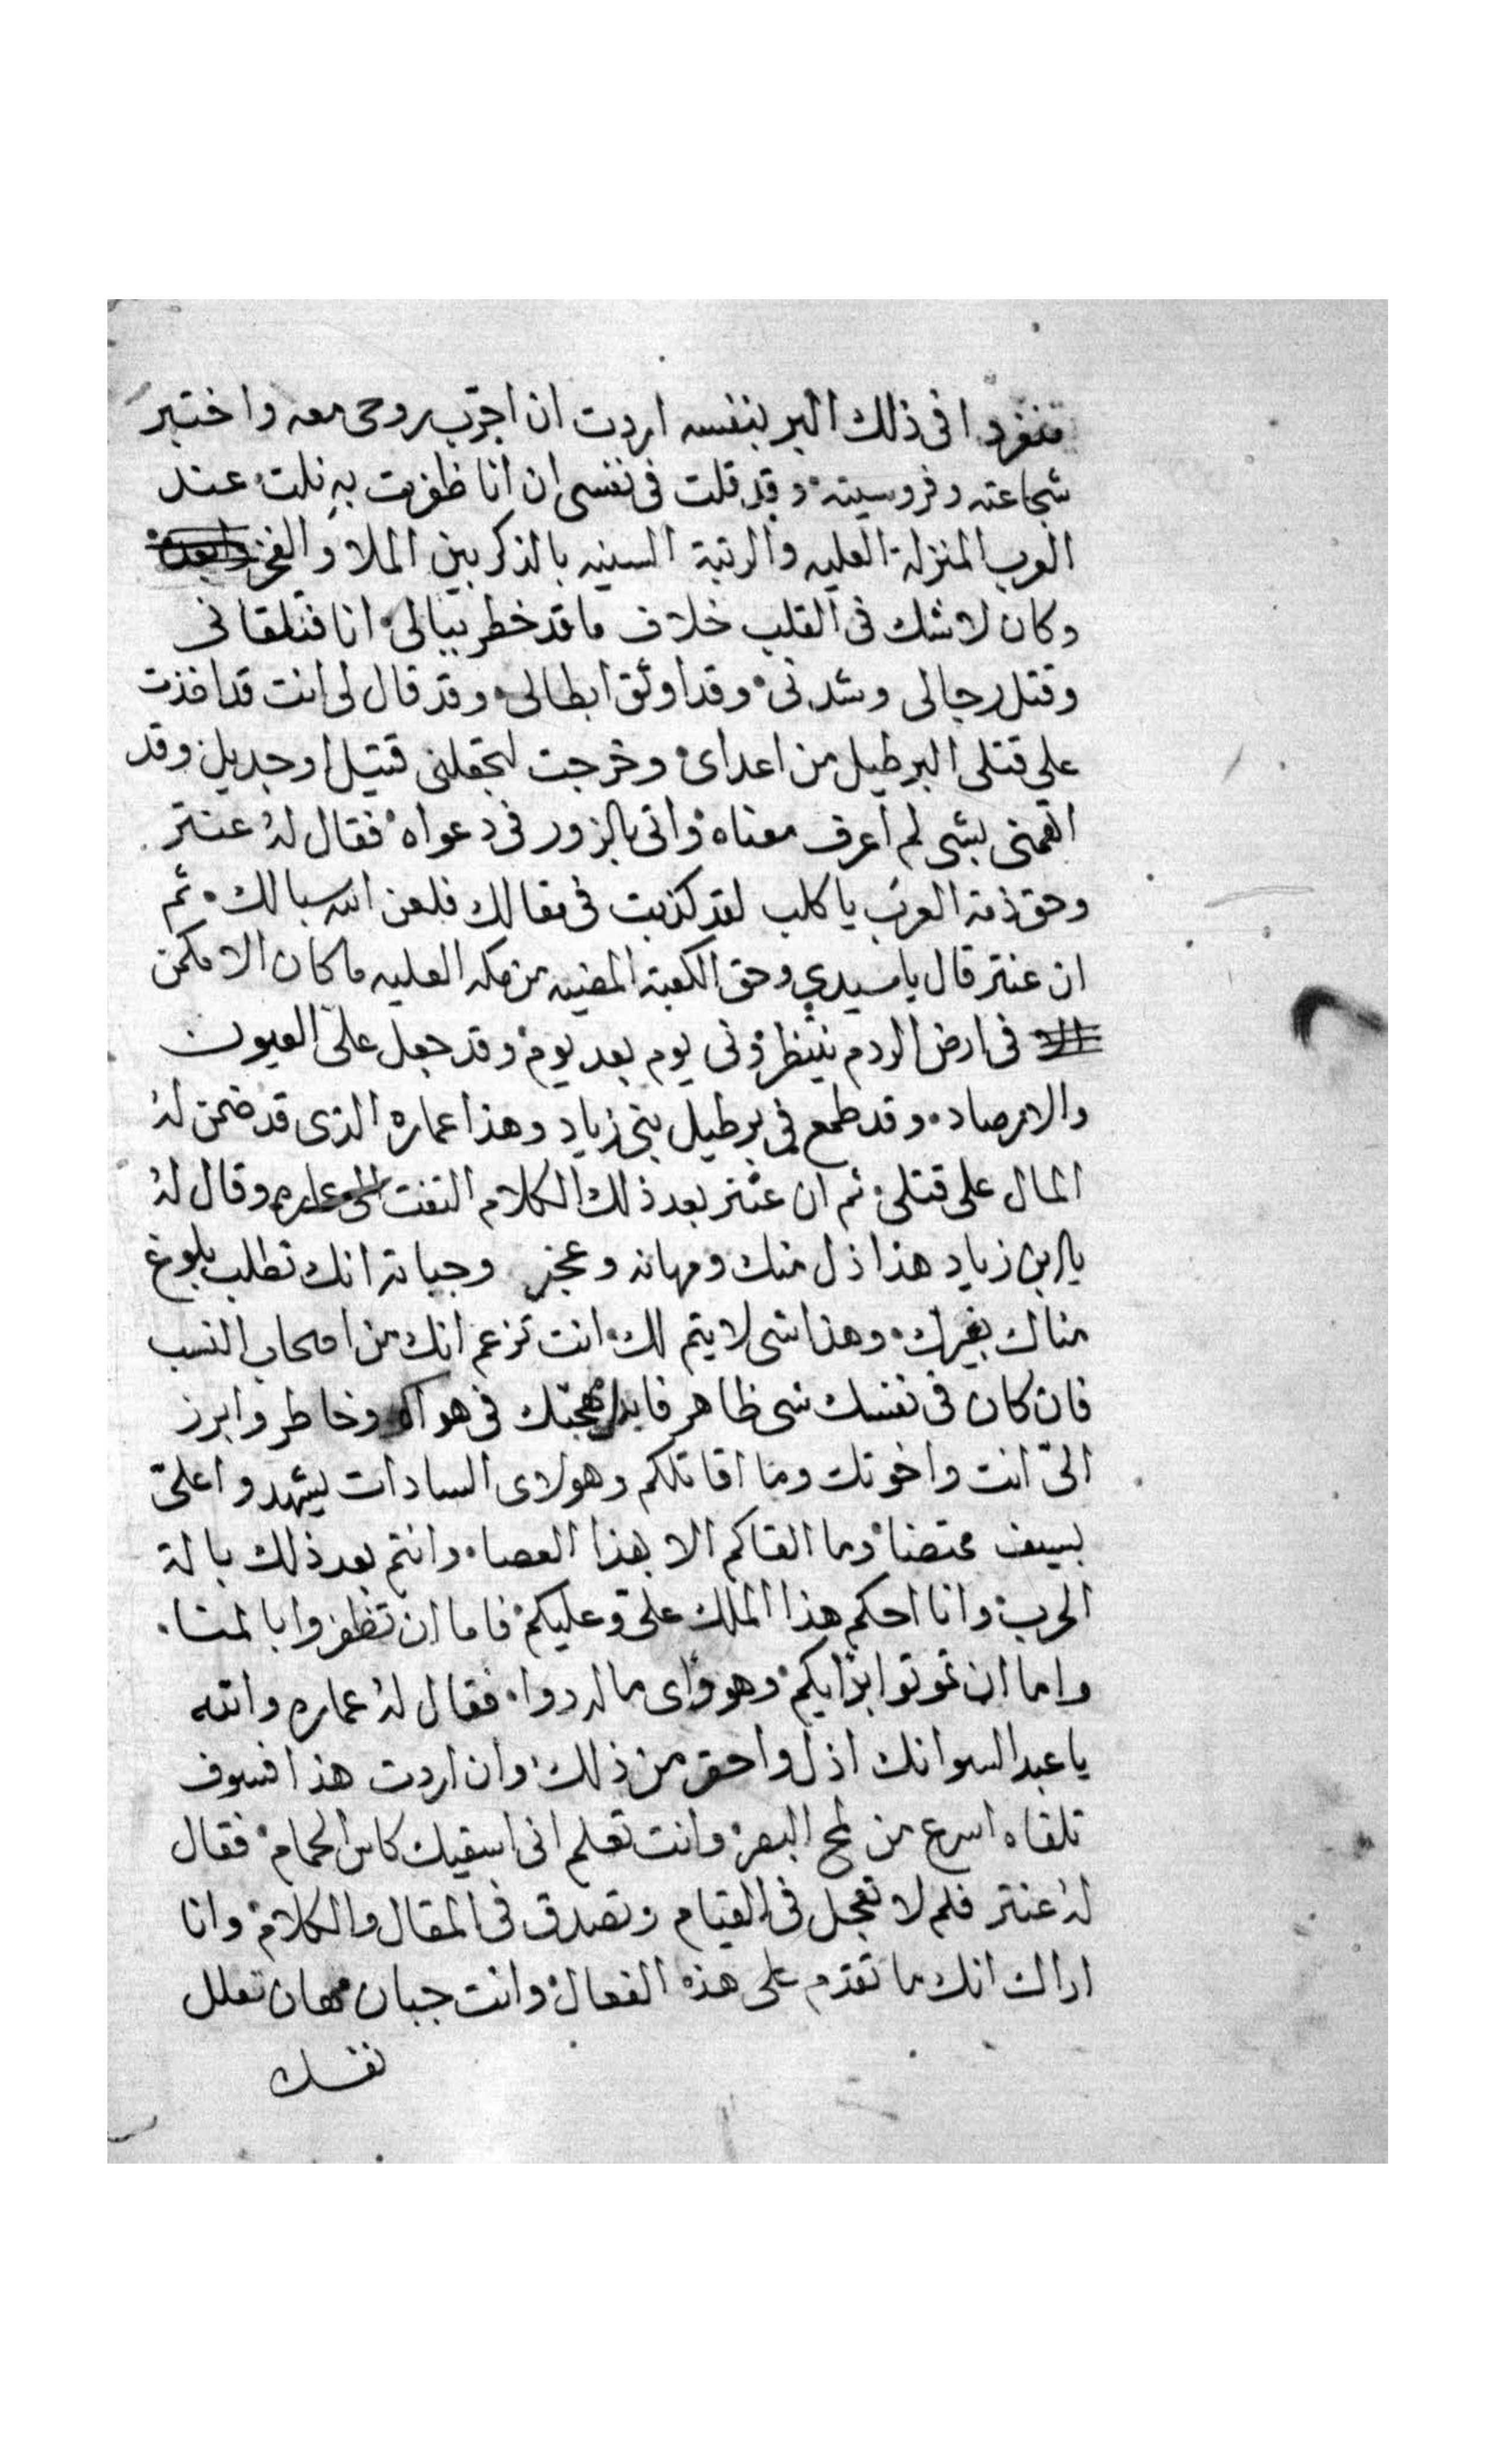 منفردا فى ذلك البر بنفسه اردت ان اجرّب روحى معه واختبر
شجاعته وفروسيته وقد قلت فى نفسى ان انا ظفرت به نلت عند
العرب المنزلة العليه والرتبة السنيه بالذكر بين الملا والفخر
وكان لا شك فى القلب خلاف ما قد خطر ببالى انا فتلقانى
وقتل رجالى وشدنى وقد اوثق ابطالى وقد قال لى انت قد اخذت
على قتلى البرطيل من اعداى وخرجت لتجعلنى قتيل او جديل وقد
اتهمنى بشى لم اعرف معناه واتى بالزور فى دعواه فقال له عنتر
وحق ذمة العرب يا كلب لقد كذبت فى مقالك فلعن الله سبالك ثم
ان عنتر قال يا سيدي وحق الكعبة المضيه من مكه العليه ما كان الا مكمن
فى ارض الردم ينتظرونى يوم بعد يوم وقد جعل علىّ العيون
والارصاد وقد طمع فى برطيل بنى زياد وهذا عماره الذى قد ضمن له
المال على قتلى ثم ان عنتر بعد ذلك الكلام التفت الى عماره وقال له
يا بن زياد هذا ذل منك ومهانه وعجز وجبانة انك تطلب بلوغ
مناك بغيرك وهذا شى لا يتم لك انت تزعم انك من اصحاب النسب
فان كان فى نفسك شى ظاهر مهجتك فى هواك وخاطر وابرز
الىّ انت واخوتك وما اقاتلكم وهولاى السادات يشهدوا علىّ
بسيف ممتضنا وما القاكم الا بهذا العصاء وانتم بعد ذلك بالة
الحرب وانا احكم هذا الملك علىّ وعليكم فاما ان تظفروا بالمنا
واما ان تموتوا بدايكم وهو داى ما له دوا فقال له عماره والله
يا عبد السو انك اذل واحقر من ذلك وان اردت هذا فسوف
تلقاه اسرع من لمح البصر وانت تعلم انى اسقيك كاس الحمام فقال
له عنتر فلم لا تعجل فى القيام وتصدق فى المقال والكلام وانا
اراك انك ما تقدم على هذه الفعال وانت جبان مهان تعلل
نفسك